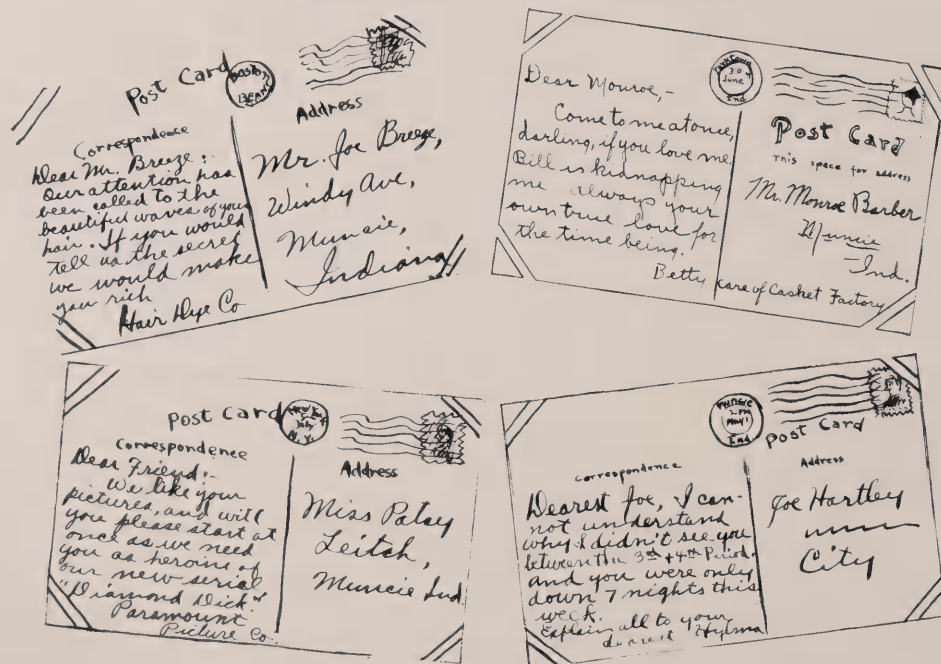 Post Card
BOSTON
BEANS
Address
Correspondence
Dear Mr. Breeze:
Our attention has
been called to the
beautiful waves of your
hair. If you would
tell us the secret
we would make
you rich
Hair Dye Co
Mr. Joe Breeze,
Windy Ave,
Muncie,
Indiana
3 P
June
Ind
Dear Monroe,-
Come to me at once,
darling, if you love me.
Bill is kidnapping
me always your
own true love for
the time being.
Betty care of Casket Factory
Post Card
This space for address
Mr. Monroe Barber
Muncie
Ind.
Post Card
New York
July
N.Y.
Correspondence
Dear Friend:-
We like your
pictures, and will
you please start at
once as we need
you as heroine of
our new serial
"Diamond Dick"
Paramount
Picture Co.
Address
Miss Patsy
Leitch,
Muncie Ind
MUNCIE
2 PM
May 1
Ind
Post Card
correspondence
Dearest Joe, I can-
not understand
why I didn't see you
between the 3rd + 4th Period.
and you were only
down 7 nights this
week.
Explain all to your
dearest Hylma
Address
Joe Hartley
City